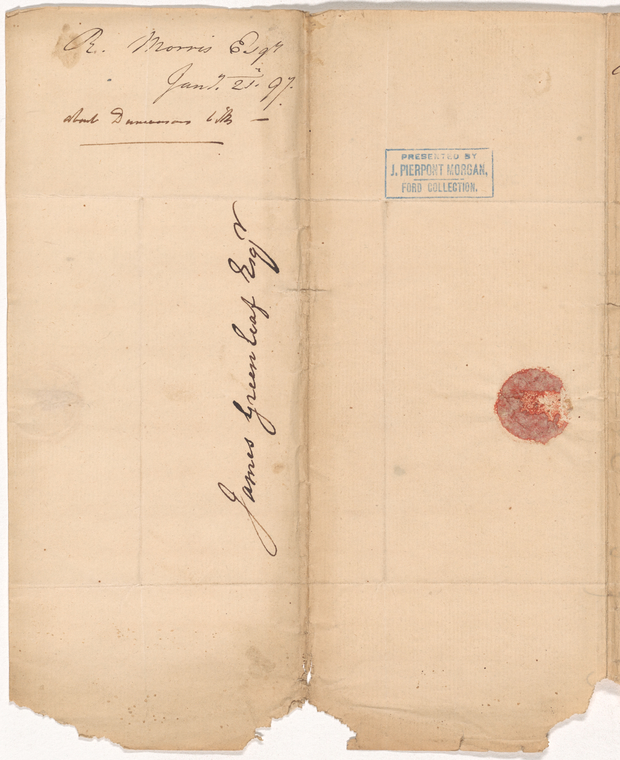 R. Morris Esqr
Jany. 21st. 97.
about Dunwoodys bills
James Greenleaf Esqr
PRESENTED BY
J. PIERPONT MORGAN,
FORD COLLECTION.